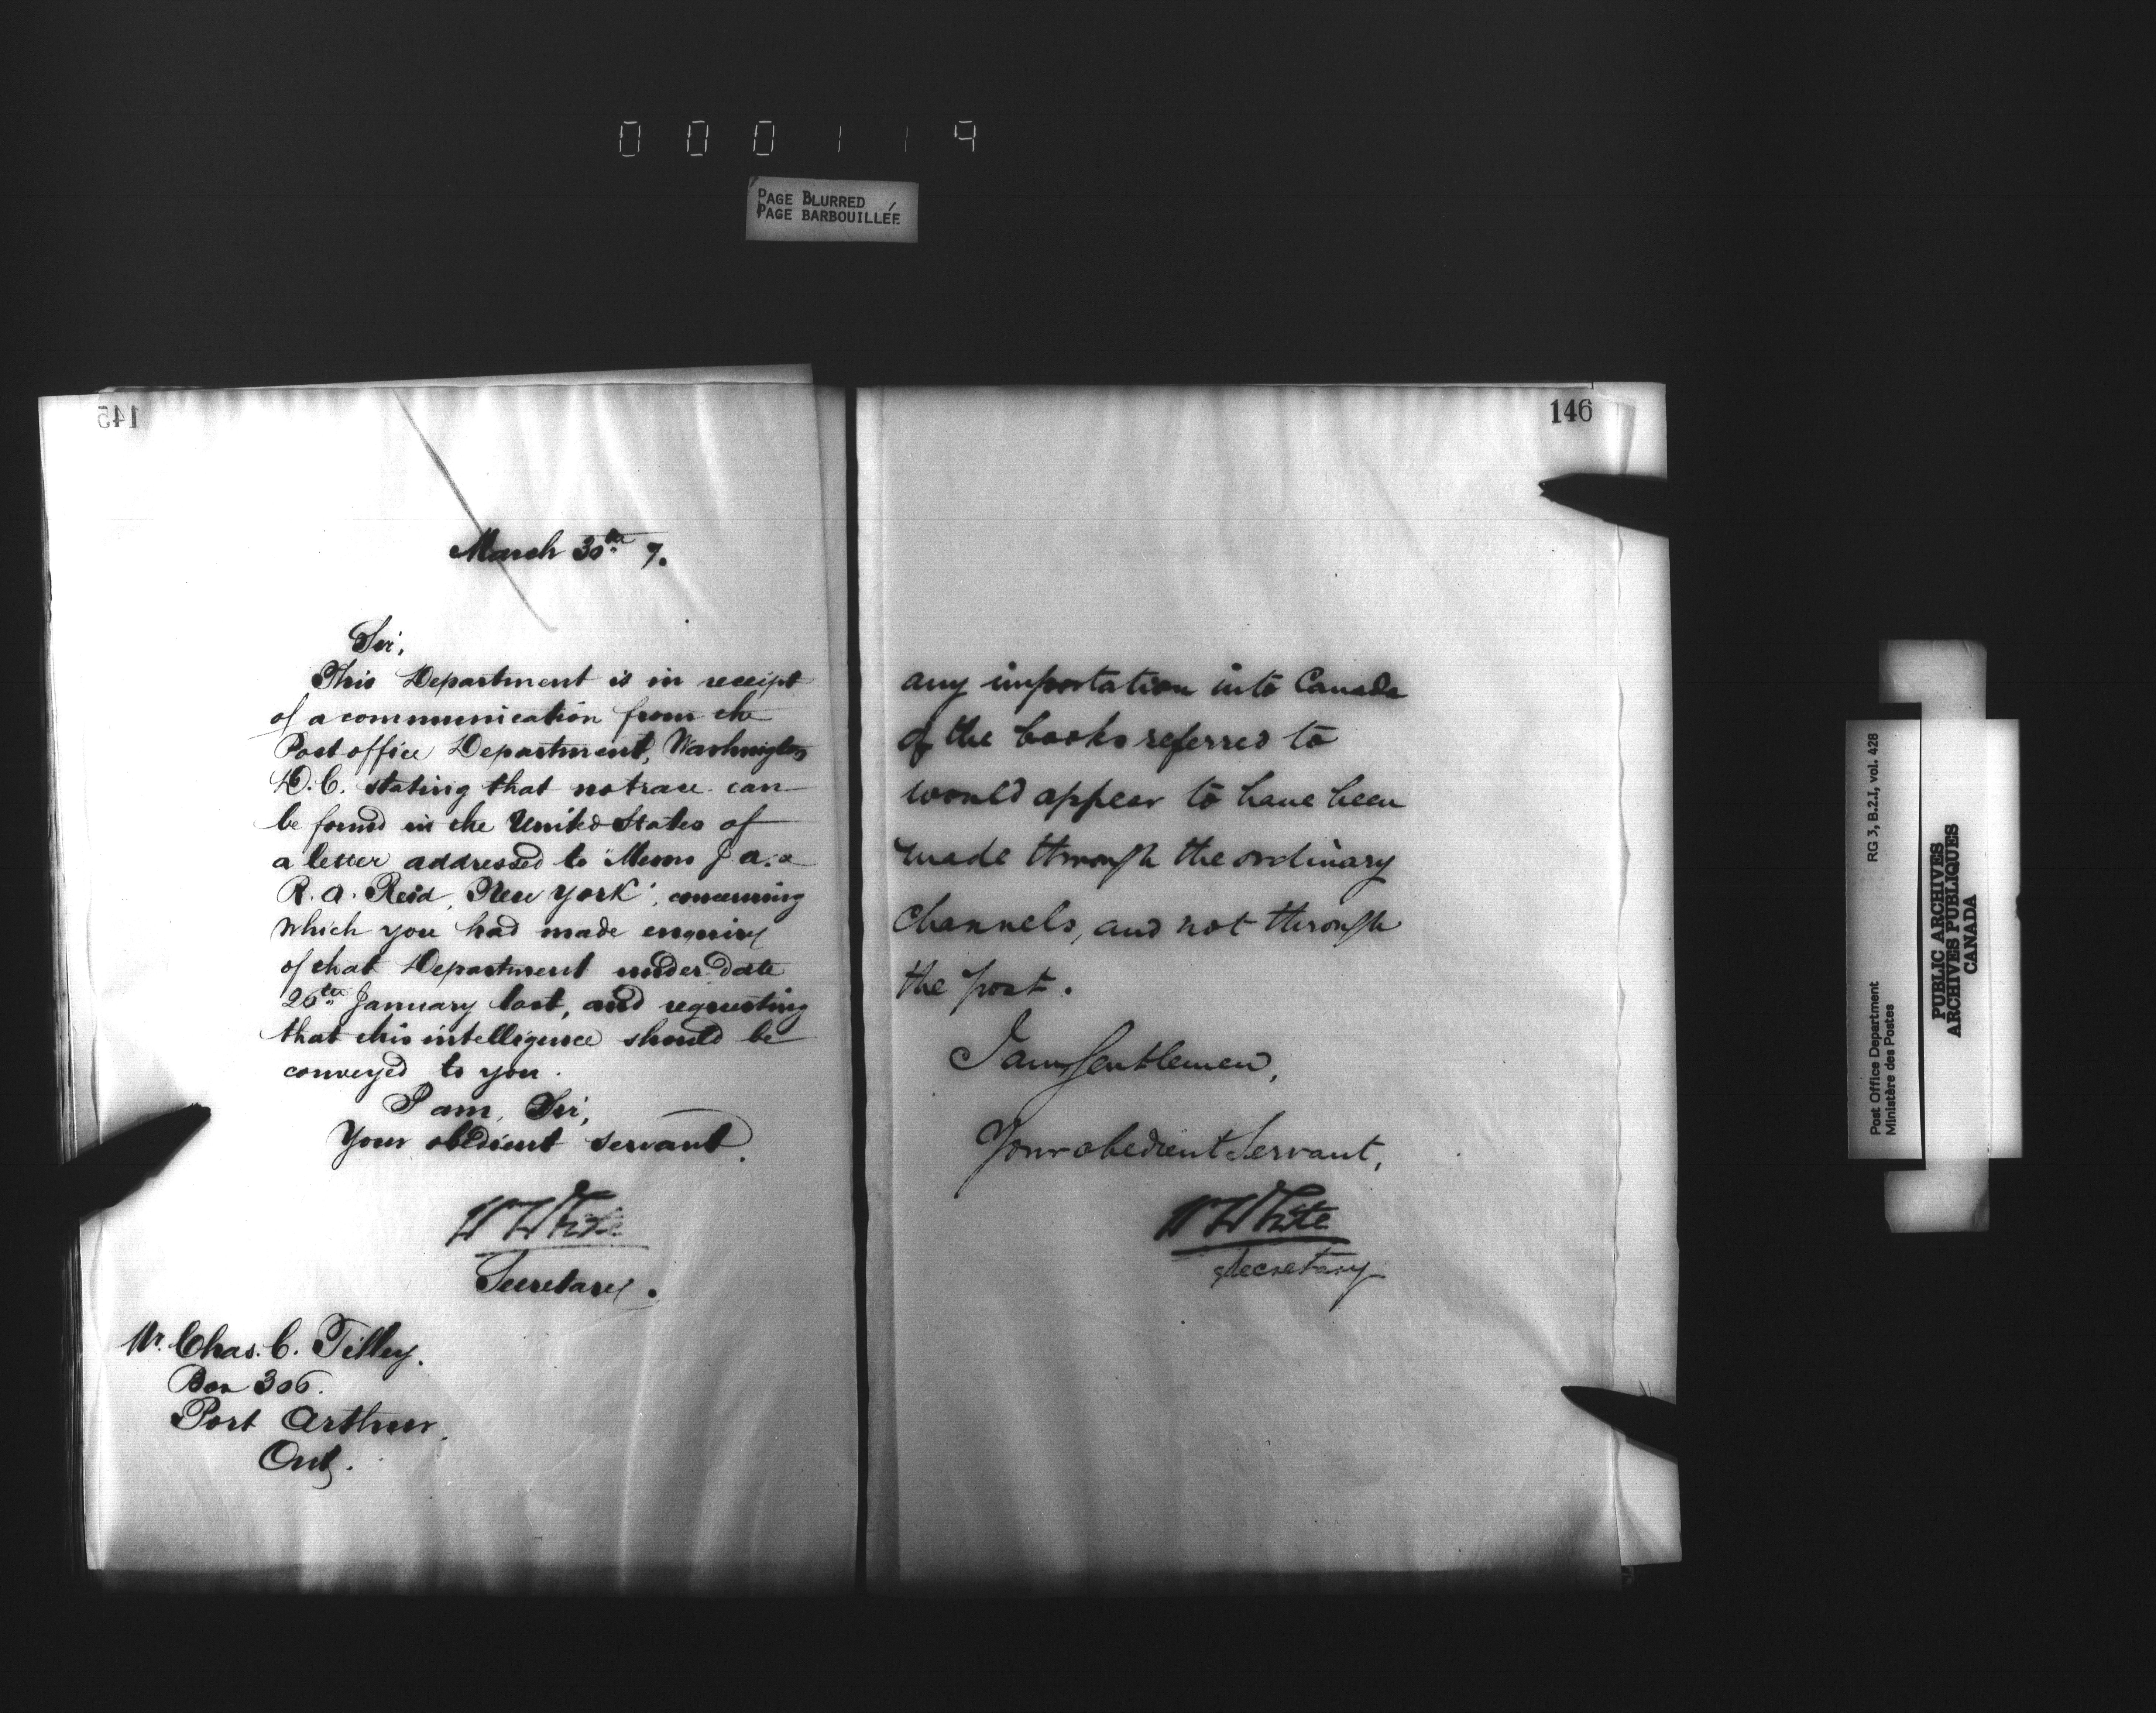 0 0 0 1 1 9
PAGE BLURRED
PAGE BARBOUILLÉE
145
March 30th 7.
Sir,
This Department is in receipt
of a communication from the
Post office Department, Washington
D.C. stating that no trace can
be found in the United States of
a letter addressed to "Messrs J. A. &
R. A. Reid, New York", concerning
which you had made enquiry
of that Department under date
26th January last, and requesting
that this intelligence should be
conveyed to you.
I am, Sir,
Your obedient servant.
W White
Secretary.
Mr. Chas. C. Tilley.
Box 306.
Port Arthur.
Ont.
146
any importation into Canada
of the books referred to
would appear to have been
made through the ordinary
channels, and not through
the post.
I am, Gentlemen,
Your obedient Servant,
W White
Secretary
Post Office Department
Ministère des Postes
RG 3, B.2.I, vol. 428
PUBLIC ARCHIVES
ARCHIVES PUBLIQUES
CANADA